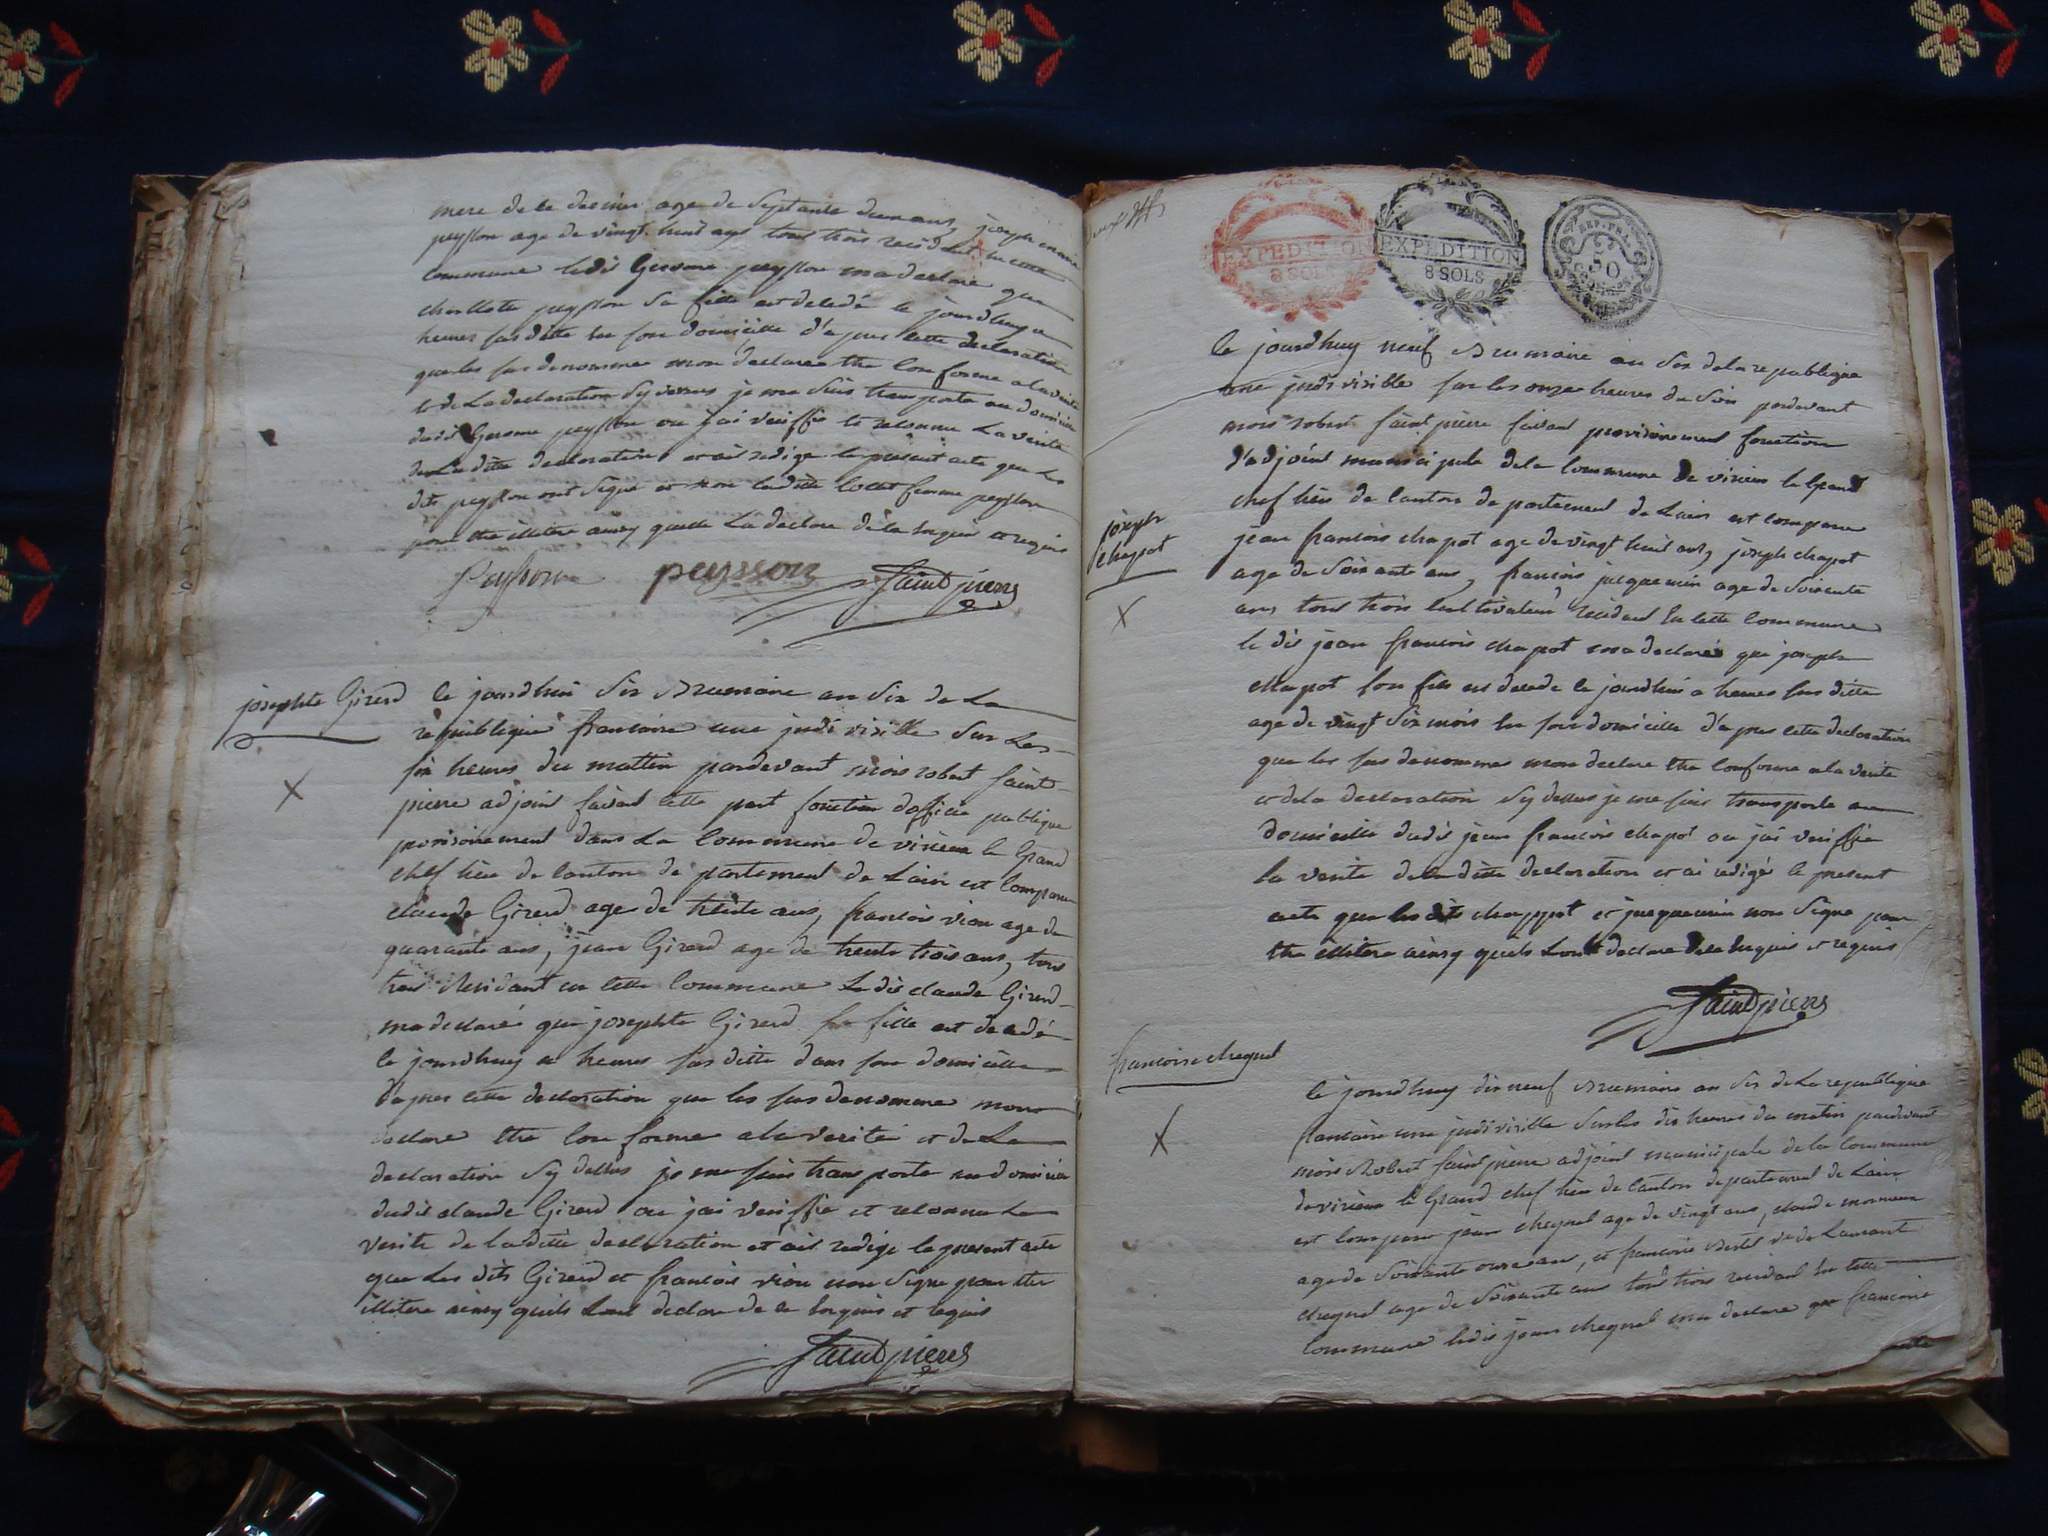 mere de la dernier age de septante deux ans, joseph marie
peysson age de vingt huit ans tous trois residant en cette
commune ledis Gerome peysson ma declare que
charllote peysson sa fille est decedé le jourdhuy a
heures sus ditte en son domicille d'apres cette declaration
que les sus denomme mon declare etre conforme a la verité
et de La declaration sy dessus je me suis transporte au domicille
dudis Gerome peysson ou jai veriffié et reconnu La verité
de La ditte declaration et ait redige le present acte que les
dits peysson ont signe et non laditte femme peysson
pour etre illitere ainsy quelle La declare de la enquis et requis
Peysson peysson Saint pierre
josephte Girerd
le jourdhui six Brumaire an six de La
republique francaise une jndivisible sur Les
six heures du mattin pardevant mois robert saint
pierre adjoint faisant cette part fonction dofficie publique
provisoirement dans La commune de virieux le Grand
chef lieu de canton de partement de Lain est comparu
claude Girerd age de trente ans, francois vion age de
quarante ans, jean Girerd age de trente trois ans, tous
trois Residant en cette commune Le dis claude Girerd
ma declaré que josephte Girerd sa fille est decedé
le jourdhuy a heures sus ditte dans son domicille
dapres cette declaration que les sus denomme mon
declare etre conforme a la verité et de La
declaration sy dessus je me suis transporte au domicile
dudis claude Girerd ou jai veriffie et reconnu La
verite de la ditte declaration et ait redige le present acte
que Les dits Girerd et francois vion non signe pour etre
illitere ainsy quils Lont declare de ce enquis et requis
Saint pierre
EXPEDITION
8 SOLS
EXPEDITION
8 SOLS
REP. FRA.
50
joseph
chapot
le jourdhuy neuf Brumaire an six de la republique
une jndivisible sur les onze heures du soir pardevant
mois robert saint pierre faisant provisoirement fonction
d'adjoint municipale de la commune de virieux le Grand
chef lieu de canton de partement de Lain est comparu
jean francois chapot age de vingt huit ans, joseph chapot
age de soixante ans, francois jacquemin age de soixente
ans tous trois cultivateur residant en cette commune
le dis jean francois chapot ma declaré que joseph
chapot son fils est decede le jourdhui a heures sus ditte
age de vingt six mois en son domicille d'apres cette declaration
que les sus denommes mon declare etre conforme a la verité
et de la declaration sy dessus je me suis transporte au
domicille dudis jean francois chapot ou jai veriffié
la verite de la ditte declaration et ai redigé le present
acte que les dits chappot et jacquemin non signe pour
etre illitere ainsy quels Lont declare de la enquis et requis
Saint pierre
francoise chaquel
le jourdhuy dix neuf Brumaire an six de La republique
francaise une jndivisible sur les dix heures du matin pardevant
mois Robert saint pierre adjoint municipale de la commune
de virieux le Grand chef lieu de canton departement de Lain
est comparu jean chaquel age de vingt ans, claude
age de soixante onze ans, et francoise ve de Laurant
chaquel age de soixante ans tous trois residant en cette
commune ledis jean chaquel ma declaré que francoise